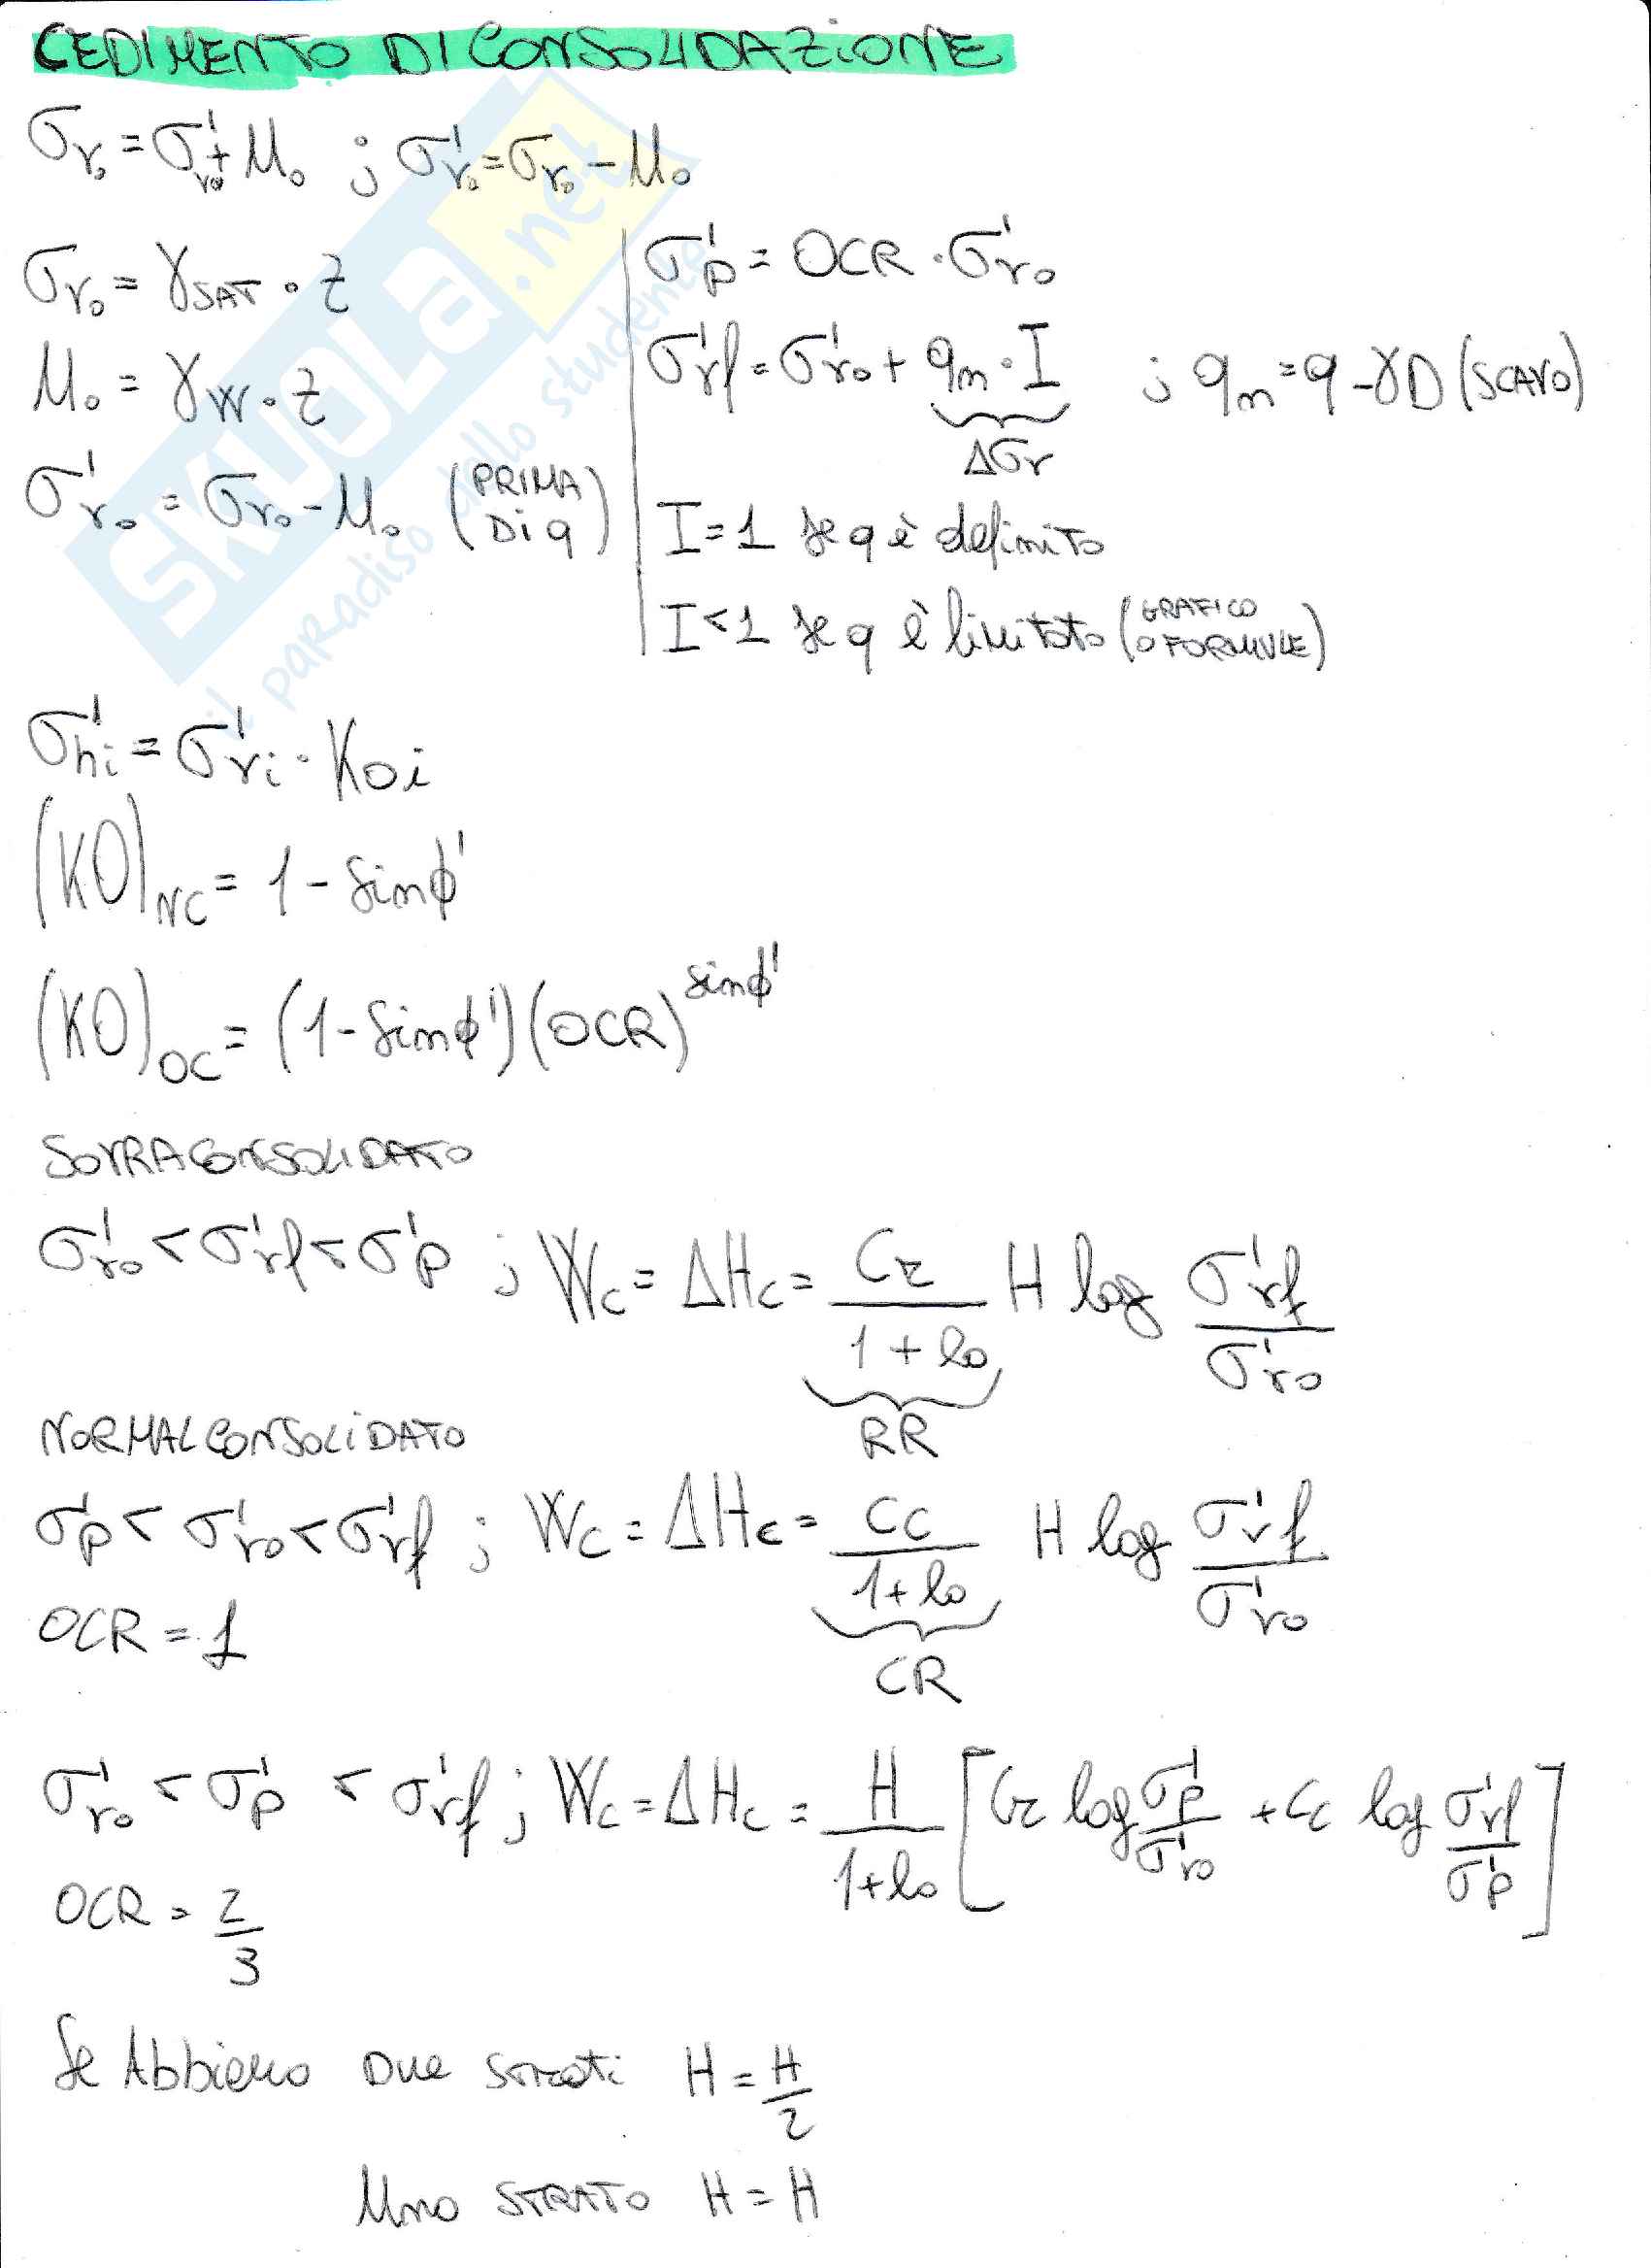 CEDIMENTO DI CONSOLIDAZIONE
σv₀ = σ'v₀ + μ₀ ; σ'v₀ = σv₀ − μ₀
σv₀ = γSAT · z
μ₀ = γw · z
σ'v₀ = σv₀ − μ₀ (PRIMA DI q)
σ'p = OCR · σ'v₀
σ'vf = σ'v₀ + qn · I ; qn = q − γD (SCAVO)
Δσv
I = 1 se q è definito
I < 1 se q è limitato (GRAFICO O FORMULE)
σ'hi = σ'vi · K0i
(K0)NC = 1 − sinϕ'
(K0)OC = (1 − sinϕ')(OCR)^sinϕ'
SOVRACONSOLIDATO
σ'v₀ < σ'vf < σ'p ; Wc = ΔHc = Cr/(1+e₀) H log σ'vf/σ'v₀
RR
NORMALCONSOLIDATO
σ'p < σ'v₀ < σ'vf ; Wc = ΔHc = Cc/(1+e₀) H log σ'vf/σ'v₀
OCR = 1
CR
σ'v₀ < σ'p < σ'vf ; Wc = ΔHc = H/(1+e₀) [Cr log σ'p/σ'v₀ + Cc log σ'vf/σ'p]
OCR = 2/3
Se Abbiamo Due strati H = H/2
Uno STRATO H = H
SKUOLA.net
il paradiso dello studente